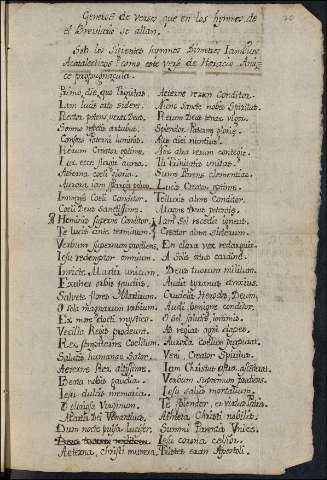 Generos de versos que en los hymnos de
el Breviario se allan.
Sob los siguientes hymnos Dimetros Iambicos
Acatalecticos como este verso de Horacio
Primo die, quo Trinitas Aeterne rerum Conditor.
Iam lucis orto sidere. Nunc Sancte nobis Spiritus.
Rector potens verax Deus. Rerum Deus tenax vigor.
Somno refectis artubus. Splendor Paternae gloriae.
Consors Paterni luminis. Aeis diei nuntius.
Rerum Creator optime. Nox atra rerum contegit.
Lux ecce surgit aurea. Tu Trinitatis unitas.
Aeterna coeli gloria. Summae Parens clementiae.
Aurora iam spargit polum. Lucis Creator optime.
Immense Coeli Conditor. Telluris alme Conditor.
Coeli Deus Sanctissime. Magnae Deus potentiae.
Hominis superne Conditor. Iam Sol recedit igneus.
Te lucis ante terminum. Creator alme siderum.
Verbum supernum prodiens. En clara vox redarguit.
Iesu redemptor omnium. A Solis ortus cardine.
Invicte Martyr unicum. Deus tuorum militum.
Exultet orbis gaudiis. Audit tyrannus anxius.
Salvete flores Martirum. Crudelis Herodes, Deum,
O sola magnarum urbium. Audi benigne conditor.
Ex more docti mystico. O Sol salutis intimis.
Vexilla Regis prodeunt. Ad regias agni dapes.
Rex sempiterne Coelitum. Aurora coelum purpurat.
Salutis humanae Sator. Veni, Creator Spiritus.
Aeterne Rex altissime. Iam Christus astra ascenderat.
Beata nobis gaudia. Verbum Supernum prodiens.
Iesu dulcis memoria. Iesu salus mortalium.
O gloriosa Virginum. Te splendor, et virtus Patris.
Martir Dei Venantius. Athleta Christi nobilis.
Dum nocte pulsa lucifer. Summi Parentis Unice.
Iesu corona celsior.
Aeterna, christi munera. Tristes erant Apostoli.